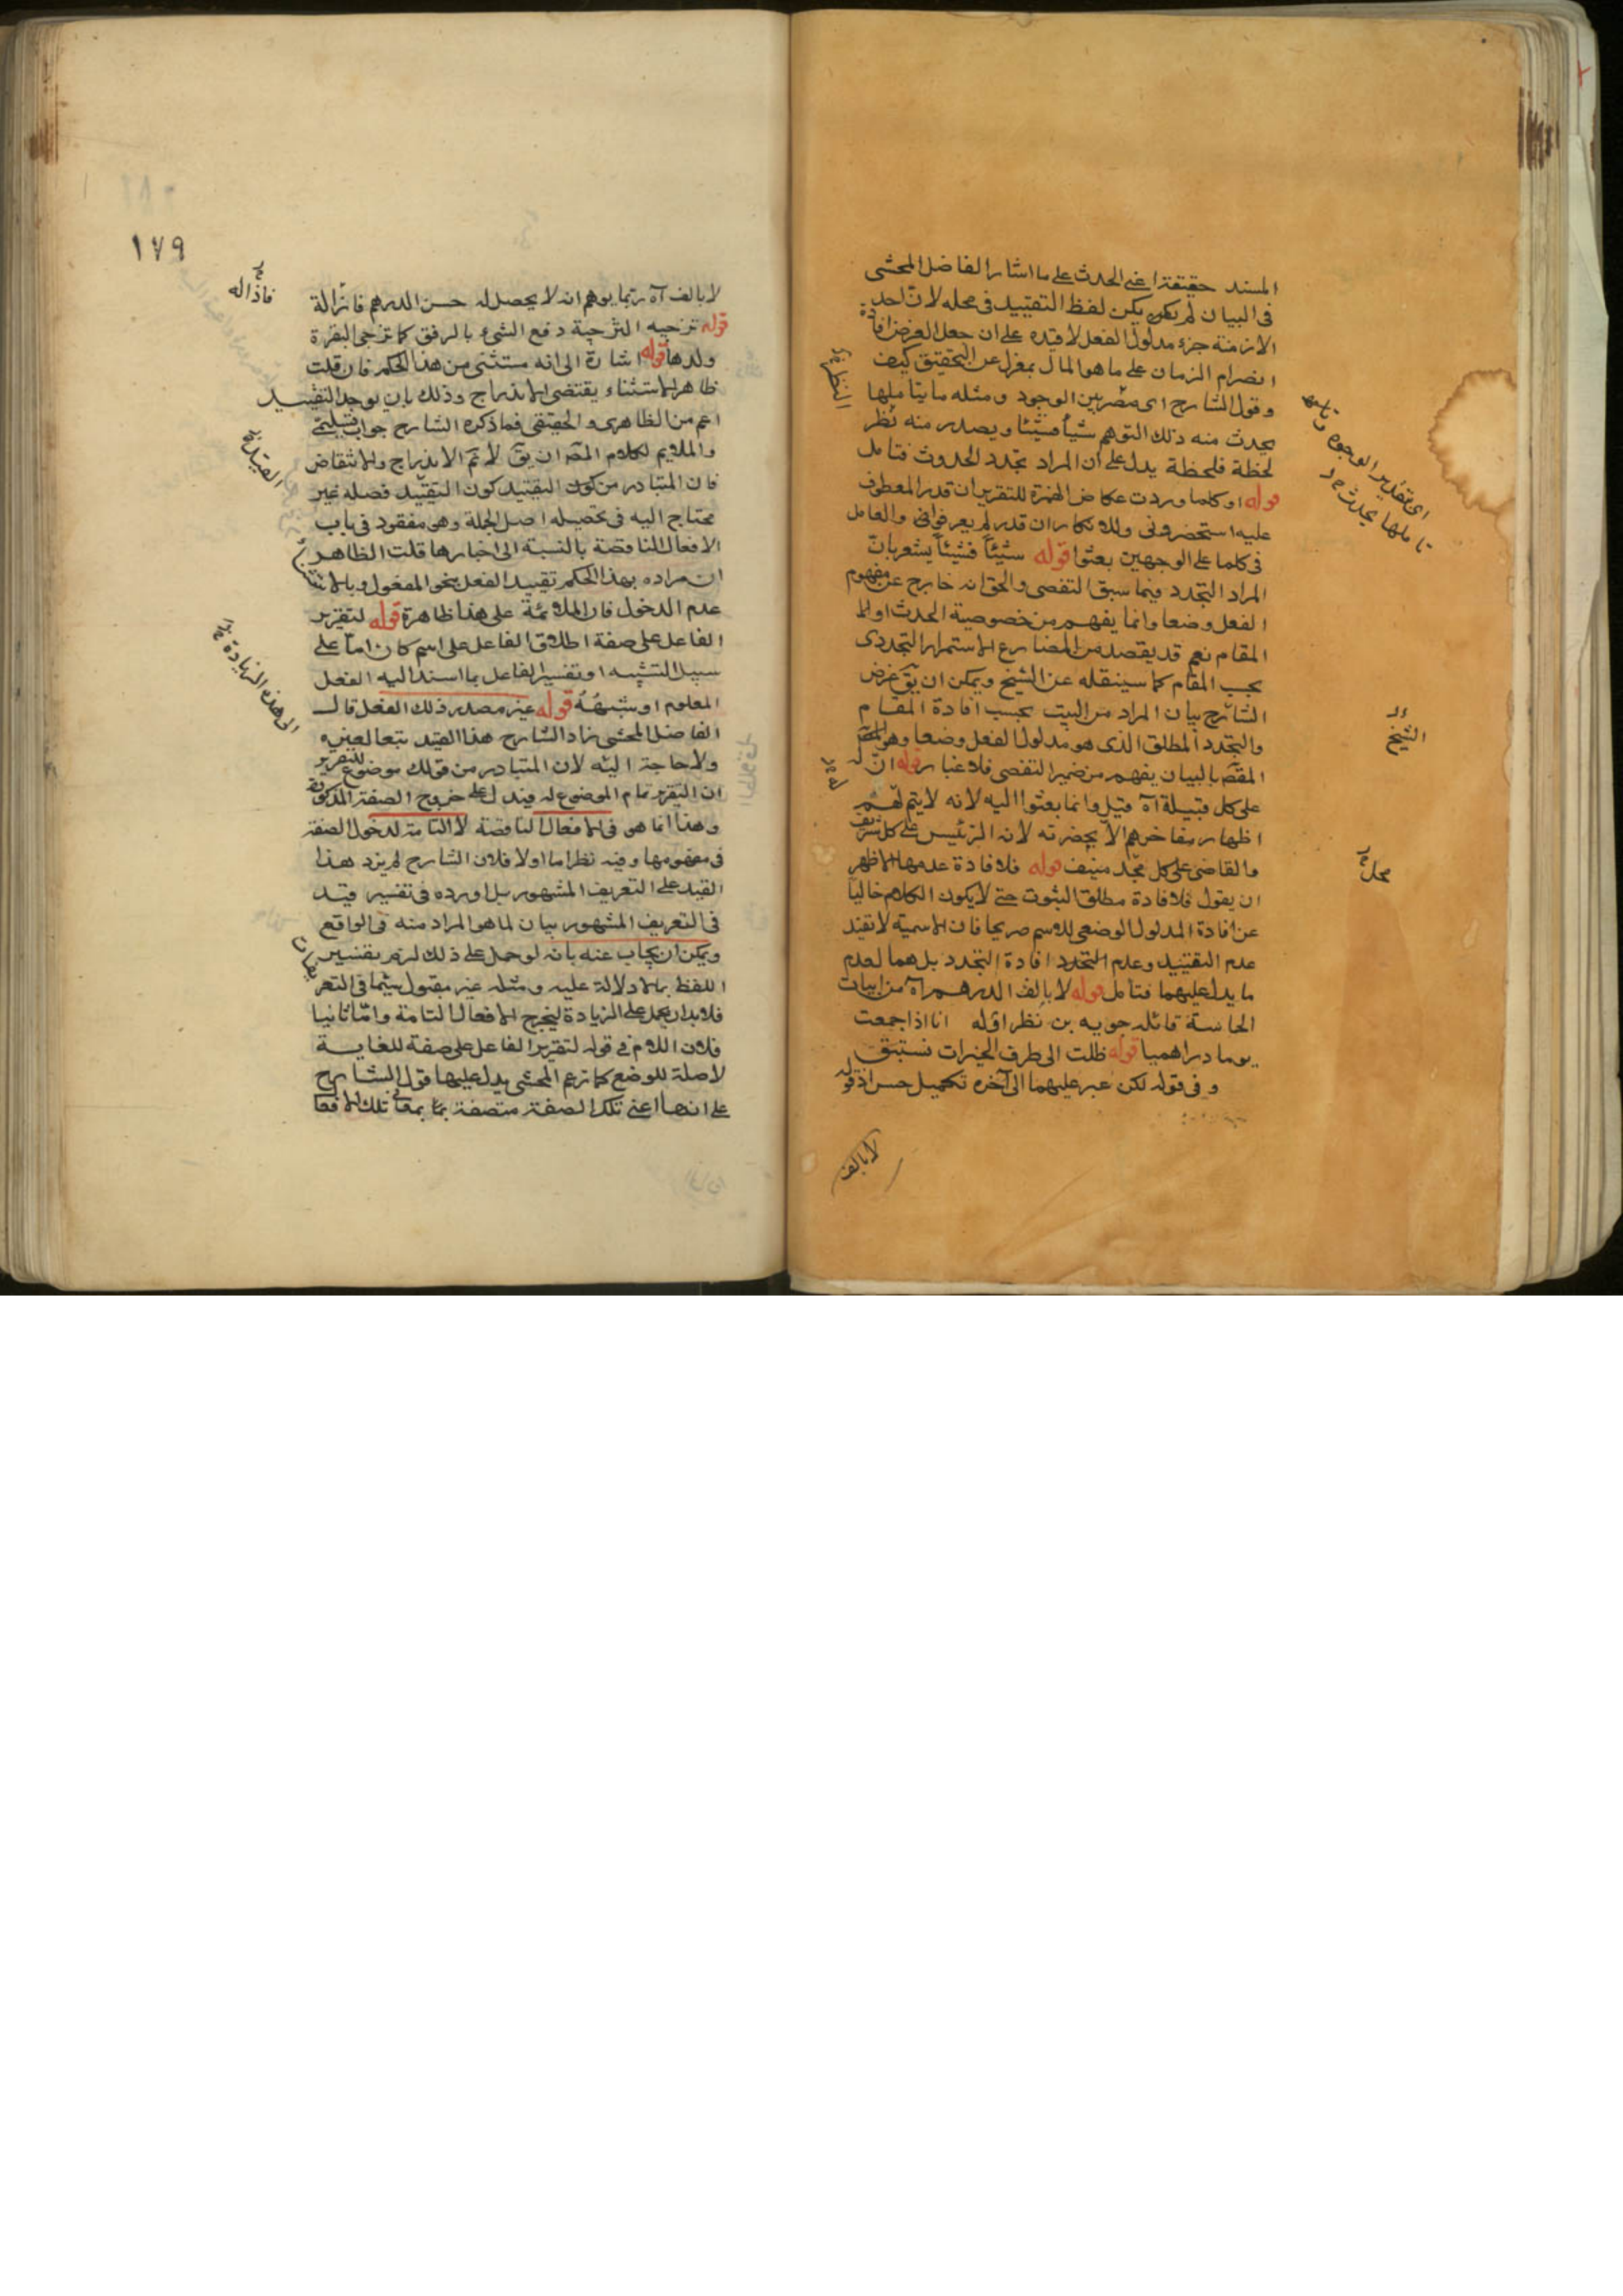 المسند حقيقة اعني الحدث على ما اشار الفاضل المحشى
فى البيان لم يكن يكن لفظ التقييد فى محله لان احد
الازمنة جزء مدلول الفعل لا قيده على ان جعل الغرض افادة
انصرام الزمان على ما هو المال بمعزل عن التحقيق كيف
وقول الشارح اى من الوجود ومثله ما يتأملها
يحدث منه ذلك التوهم شيأ فشيئا ويصدر منه نظر
لحظة فلحظة يدل على ان المراد تجدد الحدوث فتامل
قوله او كلما وردت عكاض الهمزة للتقرير ان قدر المعطوف
عليه استحضرونى وللانكار ان قدر لم يعرفونى والعامل
فى كلما على الوجهين بعثوا قوله شيئاً فشيئاً يشعر بانّ
المراد التجدد فيما سبق التفصى والحق انه خارج عن مفهوم
الفعل وضعا وانما يفهم من خصوصية الحدث او الا
المقام نعم قد يقصد من المضارع الاستمرار التجددى
بحسب المقام كما سينقله عن الشيخ ويمكن ان يق غرض
الشارح بيان المراد من البيت بحسب افادة المقام
والتجدد المطلق الذى هو مدلول الفعل وضعا وهو
المقصّ بالبيان يفهم من ضمير التفصى فلا غبار قوله انّ
على كل قبيلة اه قيل وانما بعثوا اليه لانه لا يتم لهم
اظهار مفاخرهم الا بحضرته لانه الرئيس على كل شريف
والقاضى على كل مجد منيف قوله فلافادة عدمها الاظهر
ان يقول فلافادة مطلق الثبوت حتى لا يكون الكلام خاليا
عن افادة المدلول الوضعى للاسم صريحا فان الاسمية لا تفيد
عدم التقييد وعدم التجدد افادة التجدد بل هما لعدم
ما يدل عليهما فتأمل قوله لا يالف الدرهم آه من ابيات
الحماسة قائله جويه بن نظر اوله انا اذا جمعت
يوما دراهمنا قوله ظلت الى طرف الخيرات نستبق
وفى قوله لكن عبر عليهما الى آخره تكميل حسن اذ قوله
لا يالف
اى بتقدير الوجود
تاملها يحدث
الشيخ
محل
١٧٩
لا يالف آه ربما يوهم انه لا يحصل له حسن الدرهم فانّ الة
فاذاله
قوله تزجيه التزجية دفع الشئ بالرفق كما تزجى البقرة
ولدها قوله اشارة الى انه مستثنى من هذا الحكم فان قلت
ظاهر الاستثناء يقتضى الاندراج وذلك بان يوجد التقييد
اعم من الظاهرى والحقيقى فما ذكره الشارح جواب
والملايم لكلام المص ان يق لا تم الاندراج والانتقاض
فان المتبادر من كون التقييد كون التقييد فصله غير
محتاج اليه فى تحصيله اصل الجملة وهو مفقود فى باب
الافعال الناقصة بالنسبة الى اخبارها قلت الظاهر
ان مراده بهذا الحكم تقييد الفعل بنحو المفعول وبالاستثناء
عدم الدخول فان الملائمة على هذا ظاهرة قوله لتقرير
الفاعل على صفة اطلاق الفاعل على اسم كان امّا على
سبيل التشبيه او تفسير الفاعل بما اسند اليه الفعل
المعلوم او شبهه قوله غير مصدر ذلك الفعل قال
الفاضل المحشى زاد الشارح هذا القيد تبعا لغيره
ولا حاجة اليه لان المتبادر من قولك موضوع للتقرير
ان التقرير تمام الموضوع له فيدل على خروج الصفة المذكورة
وهذا انما هو فى الافعال الناقصة لا التامة لدخول الصفة
فى مفهومها وفيه نظر اما اولا فلان الشارح لم يزد هذا
القيد على التعريف المشهور بل اورده فى تفسير قيد
فى التعريف المشهور بيان لما هو المراد منه فى الواقع
ويمكن ان يجاب عنه بانه لو حمل على ذلك لزم تفسير
اللفظ بما لا دلالة عليه ومثله غير مقبول سيّما فى التعريفات
فلا بد ان يحمل على الزيادة ليخرج الافعال التامة وامّا ثانيا
فلان اللام فى قوله لتقرير الفاعل على صفة للغاية
لا صلة للوضع كما زعم المحشى يدل عليها قول الشارح
على انها اعنى تلك الصفة متصفة بمعانى تلك الافعا
الى هذه الزيادة